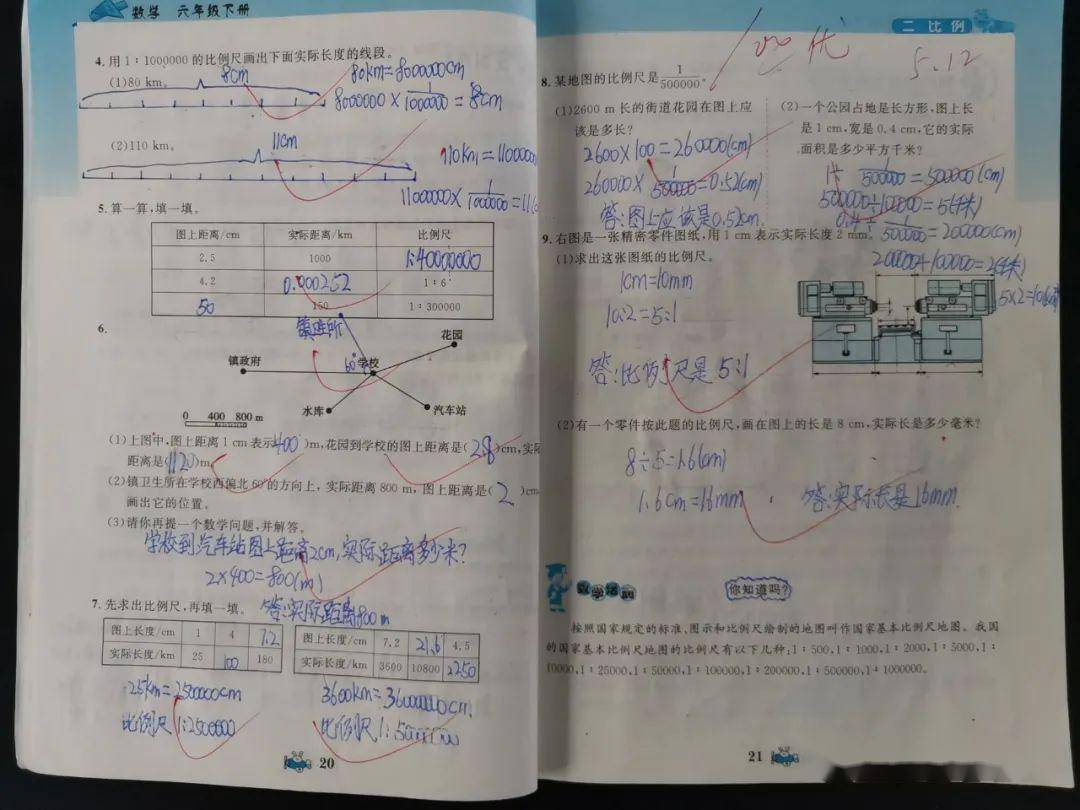 数学 六年级下册
4.用1∶1000000的比例尺画出下面实际长度的线段。
(1)80 km。
8cm
80km=8000000cm
8000000×1/1000000=8cm
(2)110 km。
11cm
110km=1100000
11000000×1/1000000=11c
5.算一算,填一填。
图上距离/cm 实际距离/km 比例尺
2.5 1000 1:40000000
4.2 0.000252 1∶6
50 150 1∶300000
6.
镇卫生所
花园
镇政府 60° 学校
水库 汽车站
0 400 800 m
(1)上图中,图上距离1 cm表示(400)m,花园到学校的图上距离是(2.8)cm,实际
距离是(1120)m。
(2)镇卫生所在学校西偏北60°的方向上,实际距离800 m,图上距离是(2)cm
画出它的位置。
(3)请你再提一个数学问题,并解答。
学校到汽车站图上距离2cm,实际距离多少米?
2×400=800(m)
答:实际距离800m
7.先求出比例尺,再填一填。
图上长度/cm 1 4 7.2
实际长度/km 25 100 180
图上长度/cm 7.2 21.6 4.5
实际长度/km 3600 10800 2250
25km=2500000cm
比例尺1:2500000
3600km=360000000cm
比例尺1:50000000
20
二 比例
优
5.12
8.某地图的比例尺是1/500000。
(1)2600 m长的街道花园在图上应
该是多长?
2600×100=260000(cm)
260000×1/500000=0.52(cm)
答:图上应该是0.52cm.
(2)一个公园占地是长方形,图上长
是1 cm,宽是0.4 cm,它的实际
面积是多少平方千米?
1÷1/500000=500000(cm)
500000÷100000=5(千米)
0.4÷1/500000=200000(cm)
200000÷100000=2(千米)
5×2=10
9.右图是一张精密零件图纸,用1 cm表示实际长度2 mm。
(1)求出这张图纸的比例尺。
1cm=10mm
10:2=5:1
答:比例尺是5:1
(2)有一个零件按此题的比例尺,画在图上的长是8 cm,实际长是多少毫米?
8÷5=1.6(cm)
1.6cm=16mm
答:实际长是16mm.
数学活
你知道吗?
按照国家规定的标准,图示和比例尺绘制的地图叫作国家基本比例尺地图。我国
的国家基本比例尺地图的比例尺有以下几种:1∶500,1∶1000,1∶2000,1∶5000,1∶
10000,1∶25000,1∶50000,1∶100000,1∶200000,1∶500000,1∶1000000。
21